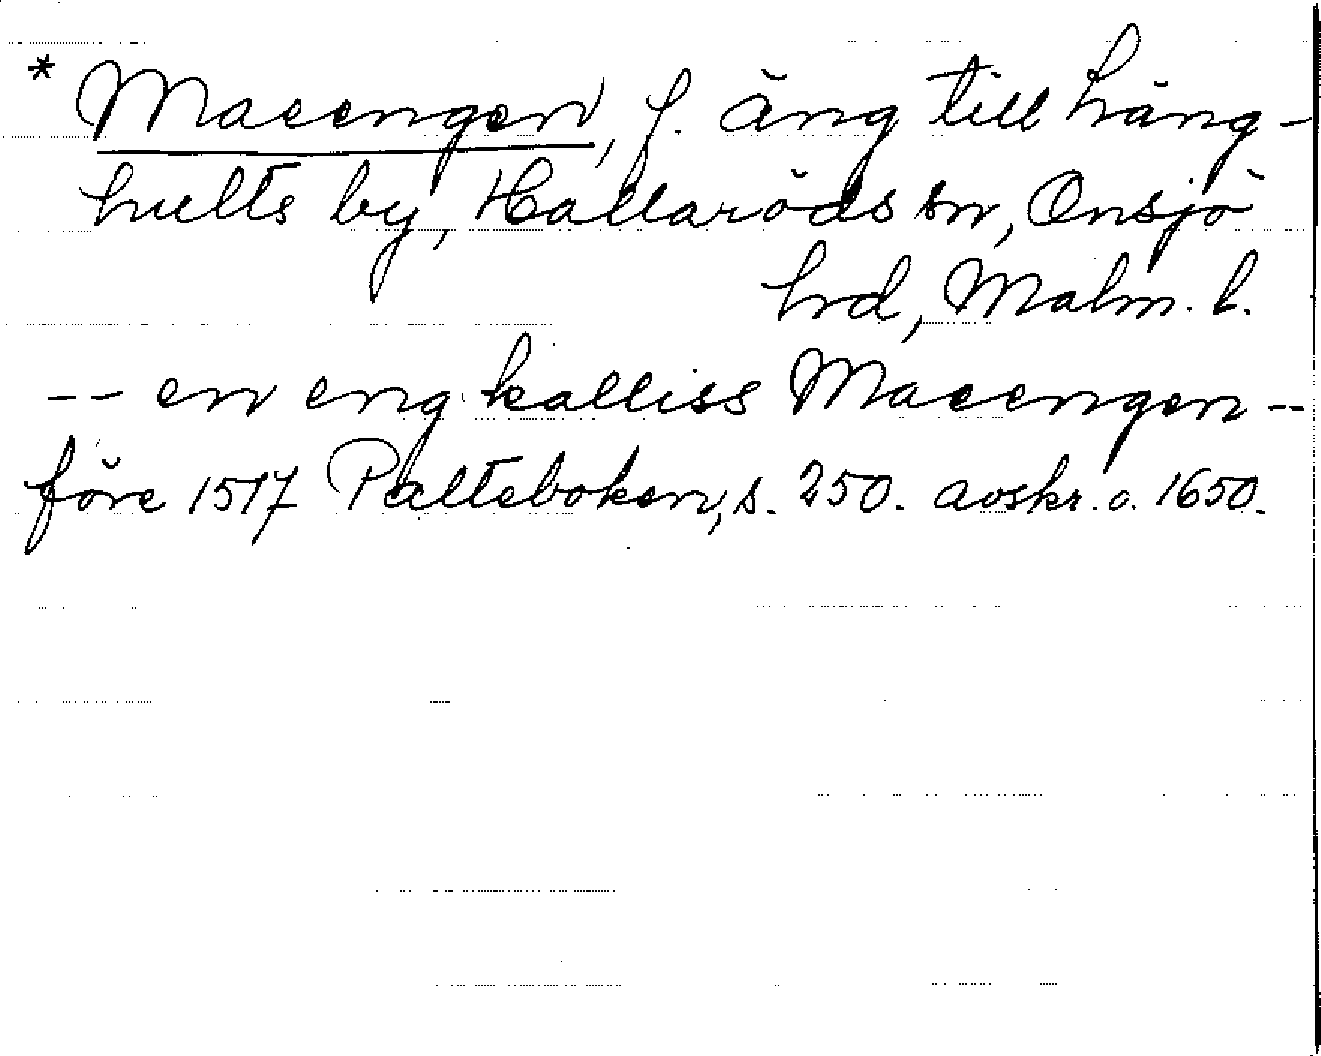 * Maeengen, f. äng till häng-
hults by, Hallaröds sn, Onsjö
hrd, Malm. l.
-- en eng kalliss Maeengen --
före 1517 Palteboken, s. 250. avskr. o. 1650.